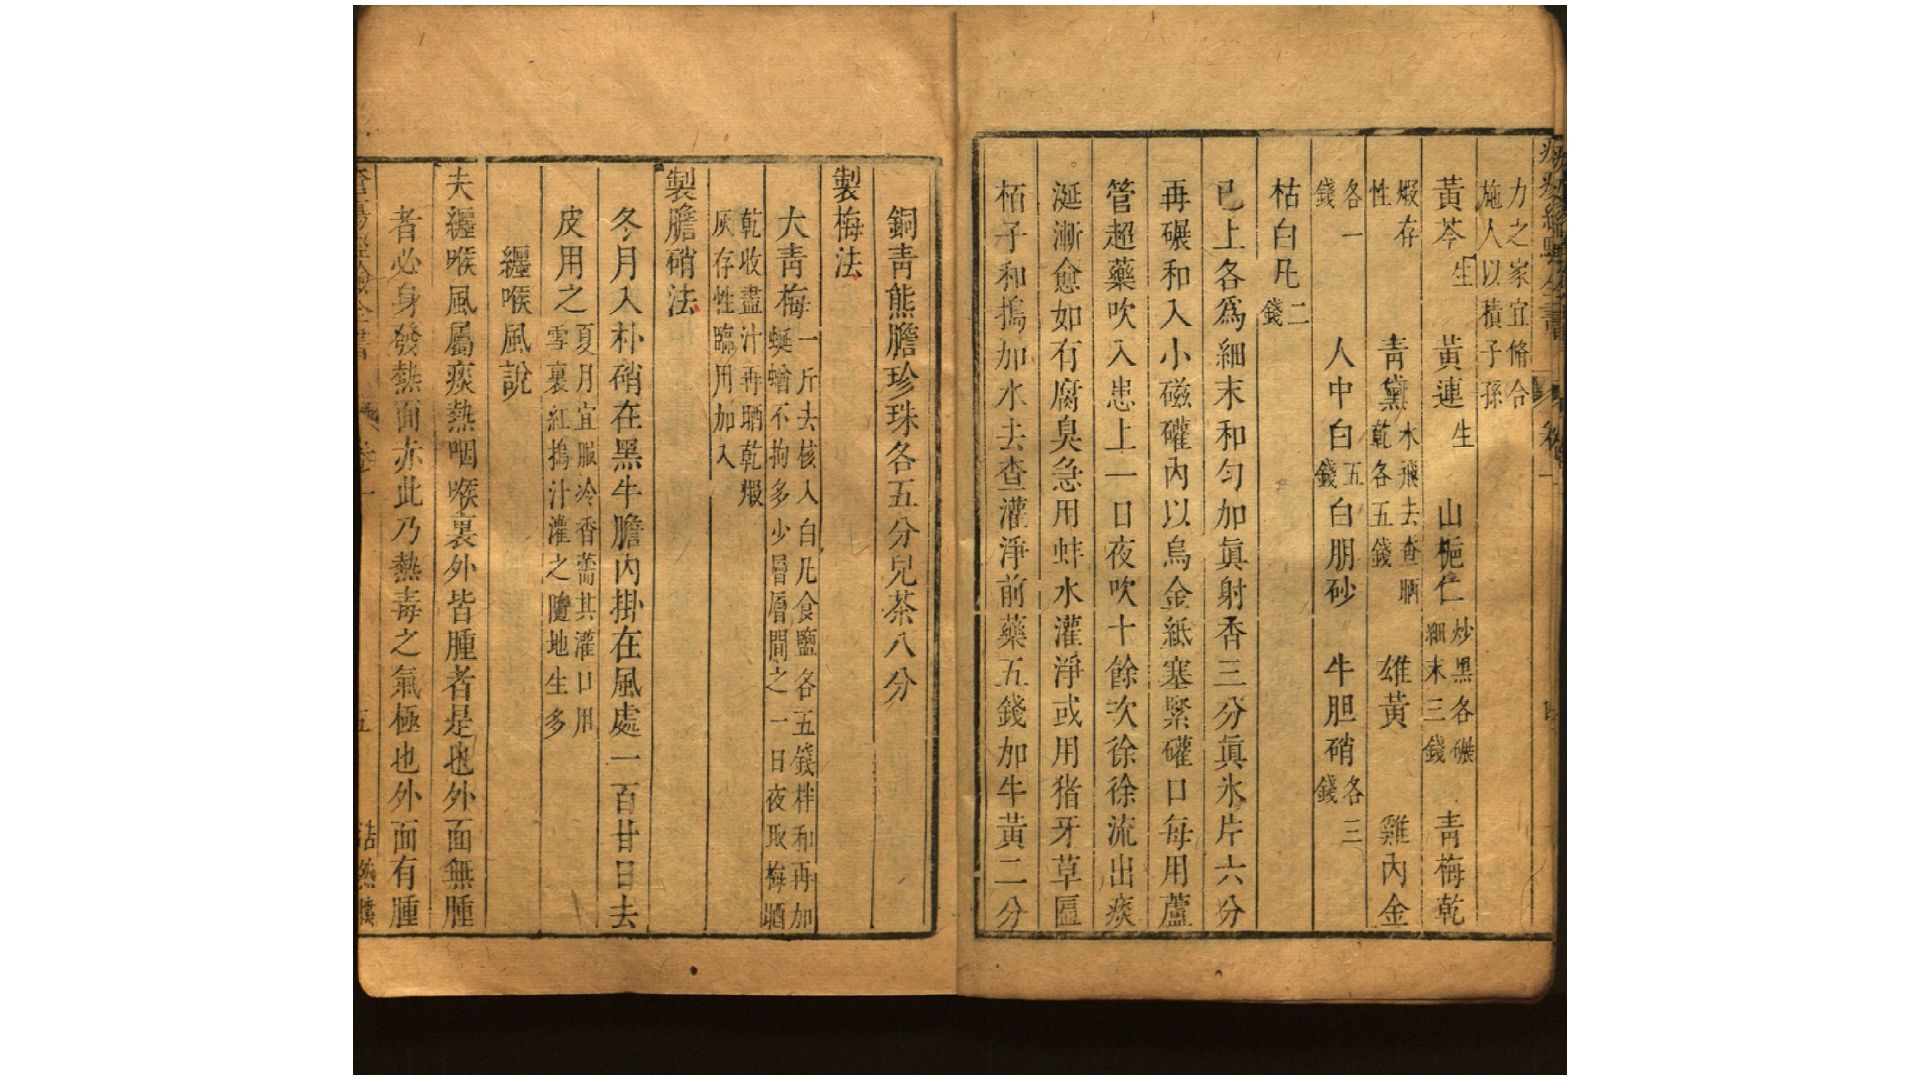 力之家宜脩合
施人以積子孫
黃芩生 黃連生 山梔仁炒黑各碾細末三錢 青梅乾
煅存性 青黛水飛去查晒乾各五錢 雄黃 雞內金
各一錢 人中白五錢 白朋砂 牛胆硝各三錢
枯白凡二錢
已上各爲細末和勻加眞射香三分眞氷片六分
再碾和入小磁確內以烏金紙塞緊確口每用蘆
管超藥吹入患上一日夜吹十餘次徐徐流出痰
涎漸愈如有腐臭急用蚌水灌淨或用猪牙草區
栢子和搗加水去查灌淨前藥五錢加牛黃二分
銅靑熊膽珍珠各五分兒茶八分
製梅法
大靑梅一斤去核入白凡食鹽各五錢拌和再加
蜒蝤不拘多少層層間之一日夜取梅晒
乾收盡汁再晒乾煅
灰存性臨用加入
製膽硝法
冬月入朴硝在黑牛膽內掛在風處一百廿日去
皮用之夏月宜服冷香薷其灌口用
雪裏紅搗汁灌之隨地生多
纏喉風說
夫纏喉風屬痰熱咽喉裏外皆腫者是也外面無腫
者必身發熱面赤此乃熱毒之氣極也外面有腫